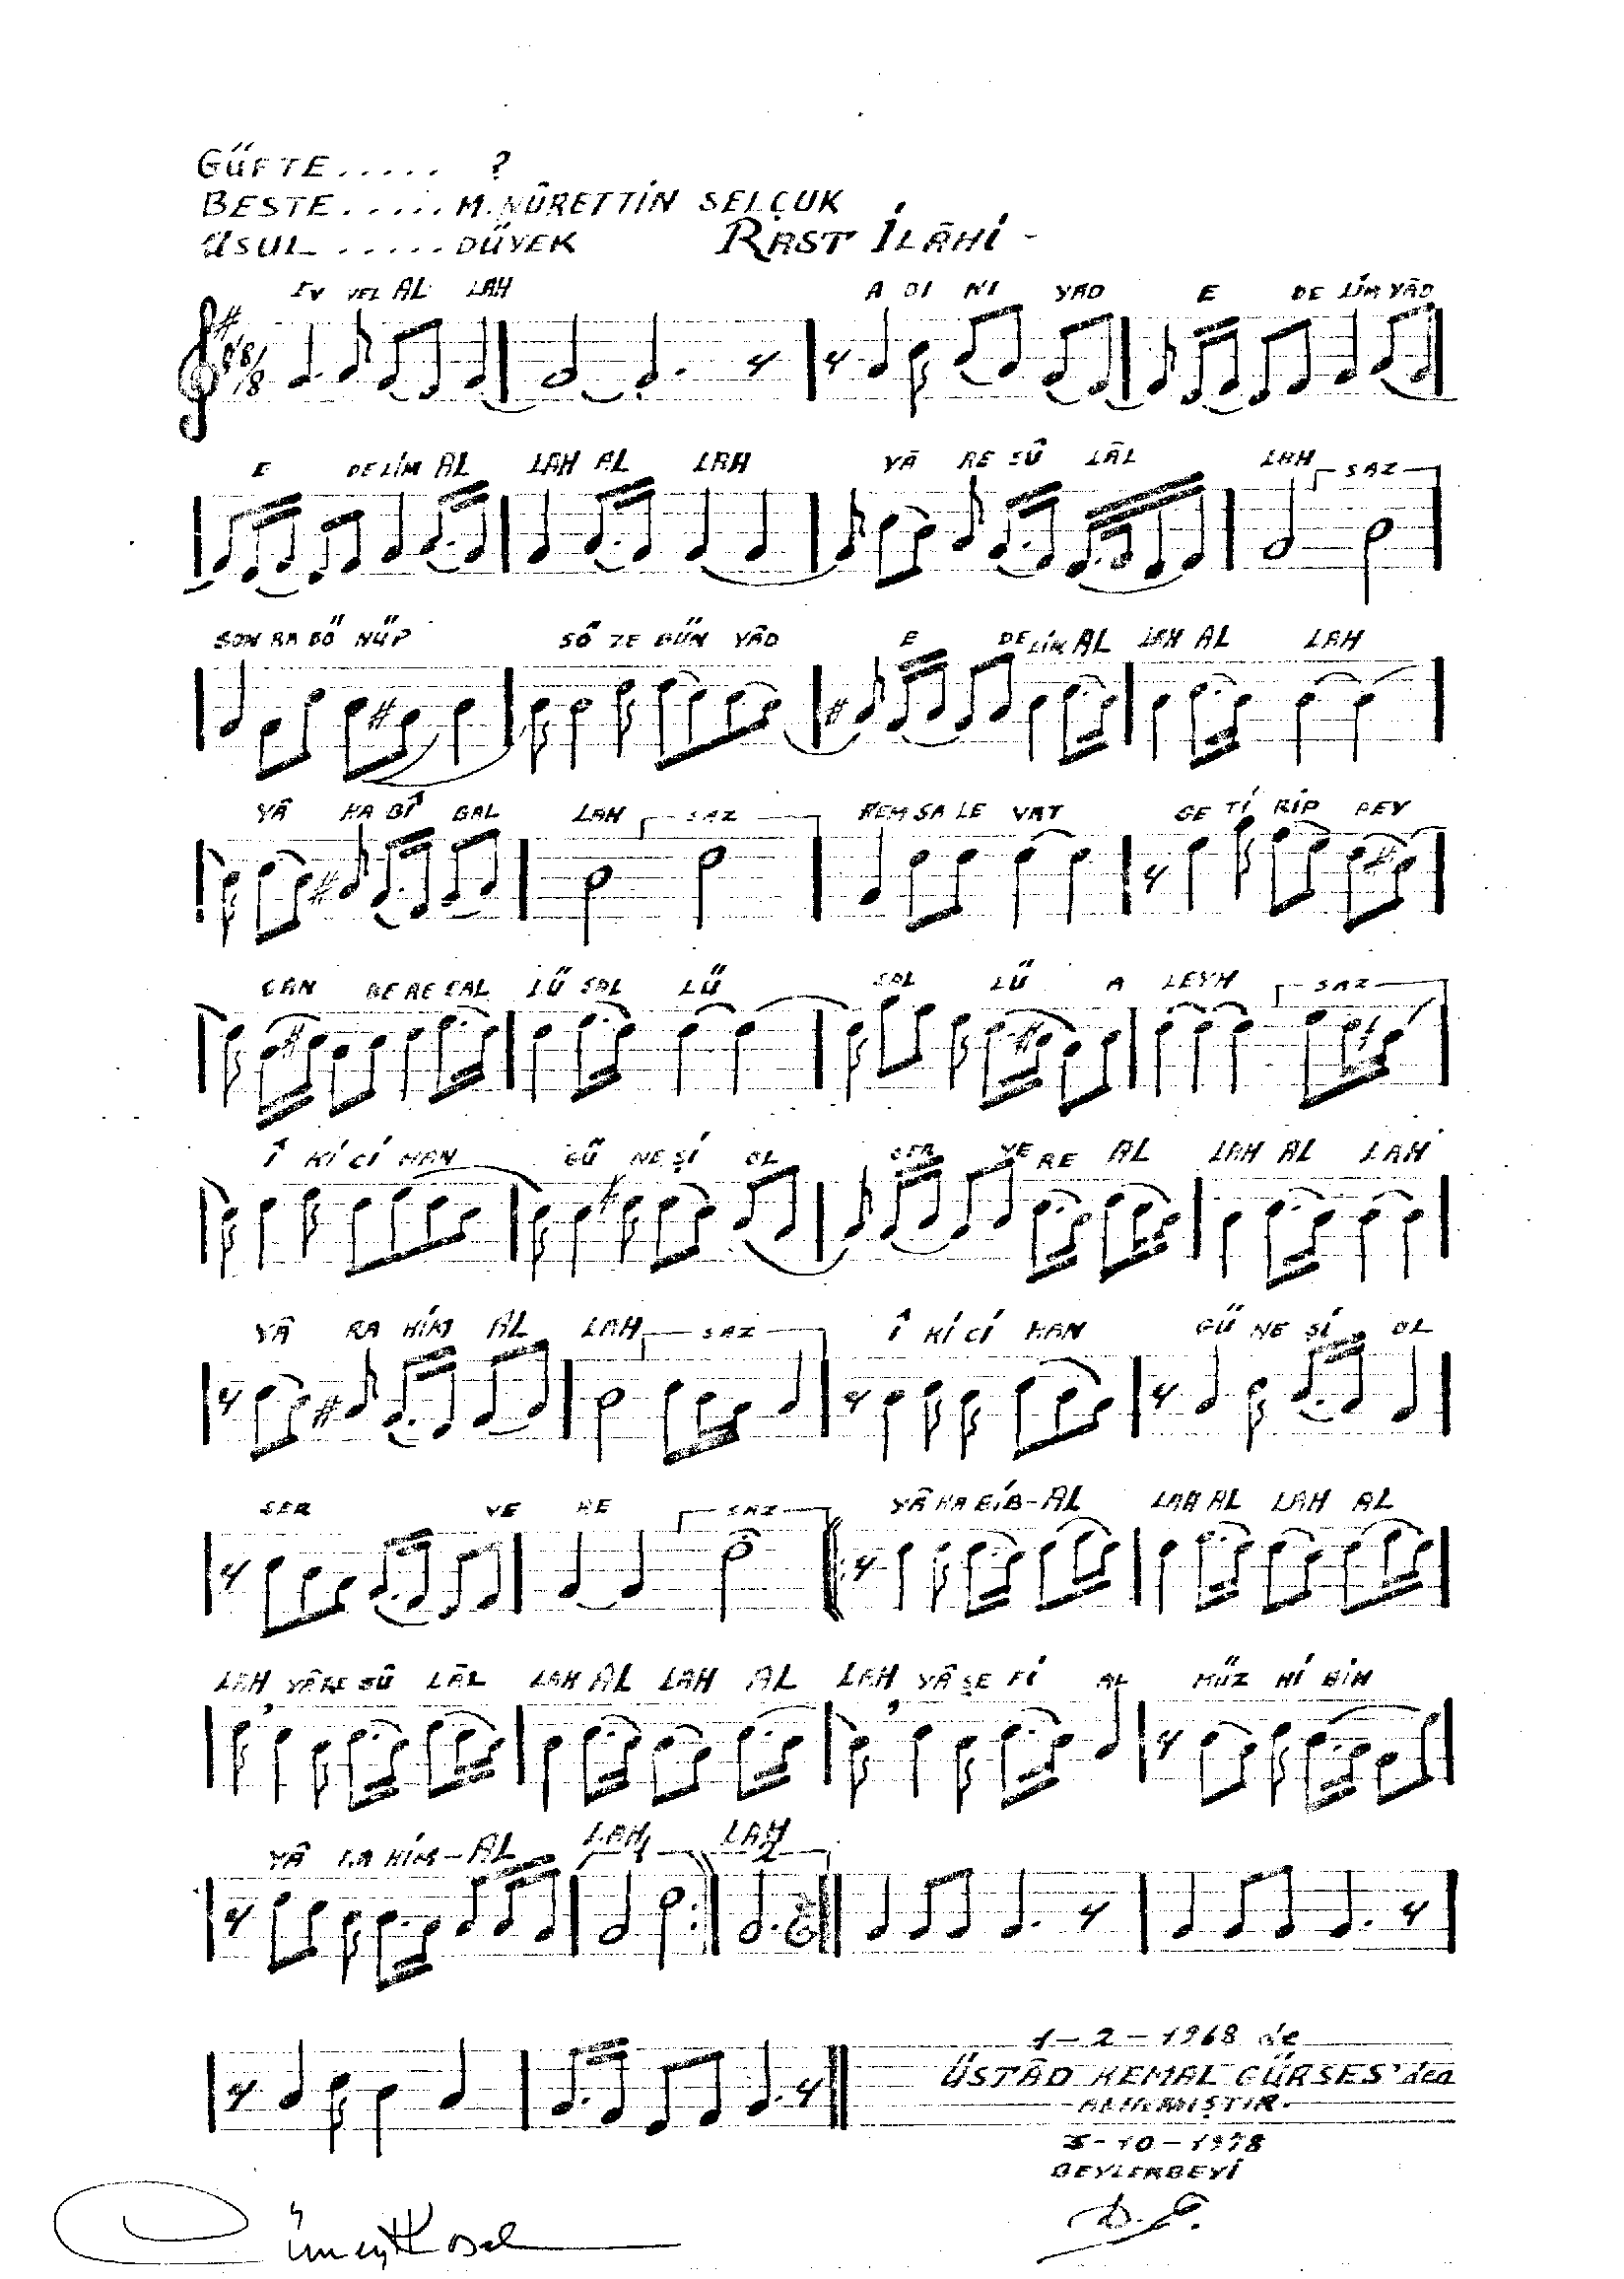 GÜFTE..... ?
BESTE..... M. NÛRETTİN SELÇUK
USUL ..... DÜYEK
RAST İLÂHİ -
8/8
EV VEL AL LAH A DI NI YÂD E DE LİM YÂD
E DE LİM AL LAH AL LAH YÂ RE SÛ LÂL LAH SAZ
SON RA DÖ NÜP SÖ ZE GÜN YÂD E DE LİM AL LAH AL LAH
YÂ HA BÎ BAL LAH SAZ HEM SA LE VAT GE Tİ RİP PEY
CAN BE RE SAL LÛ SAL LÛ SAL LÛ A LEYH SAZ
Î Kİ Cİ HAN GÜ NE Şİ OL SER VE RE AL LAH AL LAH
YÂ RA HİM AL LAH SAZ Î Kİ Cİ HAN GÜ NE Şİ OL
SER VE RE SAZ YÂ HA BİB-AL LAH AL LAH AL
LAH YÂ RE SÛ LÂL LAH AL LAH AL LAH YÂ ŞE Fİ AL MÜZ Nİ BİN
YÂ RA HİM-AL LAH 1 LAH 2
1-2-1968 de
ÜSTÂD KEMAL GÜRSES'den
ALINMIŞTIR.
-10-1978
BEYLERBEYİ